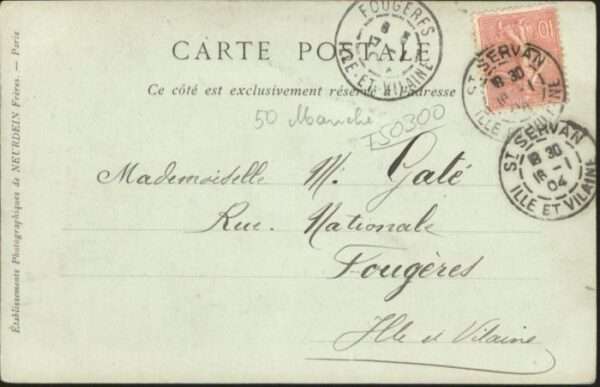 CARTE POSTALE
Ce côté est exclusivement réservé à l'adresse
50 Manche
Mademoiselle M. Gaté
Rue Nationale
Fougères
Ille et Vilaine
Établissements Photographiques de NEURDEIN Frères. — Paris
FOUGÈRES
8
17
ILLE-ET-VILAINE
10
ST SERVAN
18 30
16 -1
04
ILLE ET VILAINE
ST SERVAN
18 30
16 -1
04
ILLE ET VILAINE